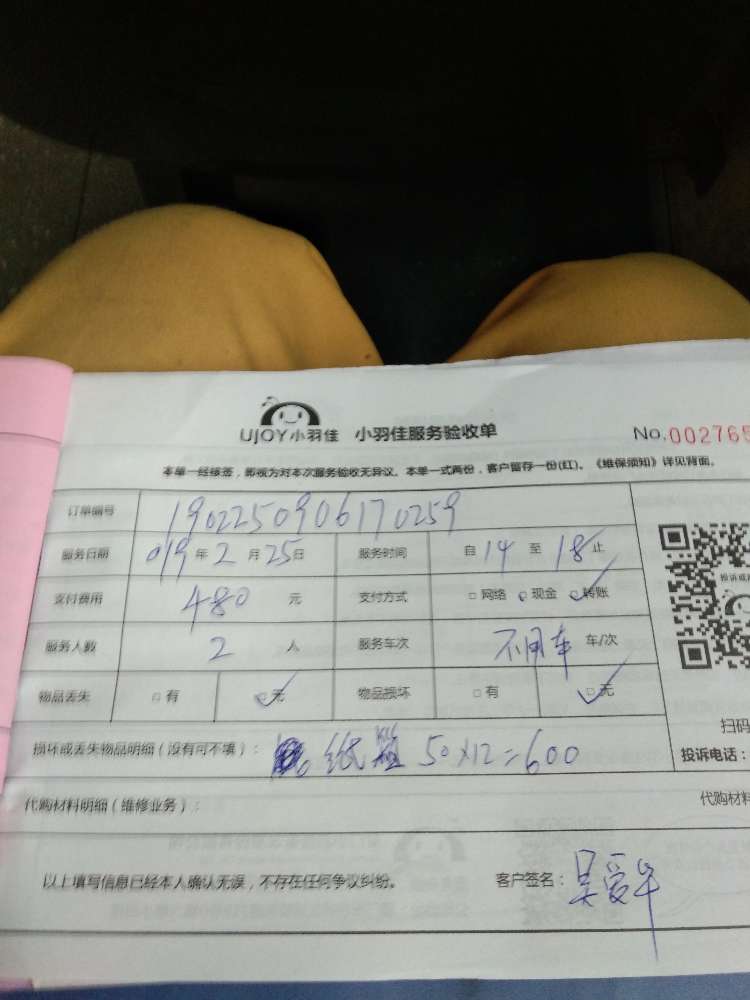 UJOY小羽佳 小羽佳服务验收单 No.002765
本单一经续签，即视为对本次服务验收无异议。本单一式两份，客户留存一份(红)。《维保须知》详见背面。
订单编号 1902250906170259
服务日期 019年2月25日 服务时间 自14至18止
支付费用 480元 支付方式 □网络 □现金 □转账
服务人数 2人 服务车次 不用车 车/次
物品丢失 □有 □无 物品损坏 □有 □无
扫码
损坏或丢失物品明细（没有可不填）： 纸 50×12=600
投诉电话：
代购材料明细（维修业务）： 代购材料
以上填写信息已经本人确认无误，不存在任何争议纠纷。 客户签名：吴爱华